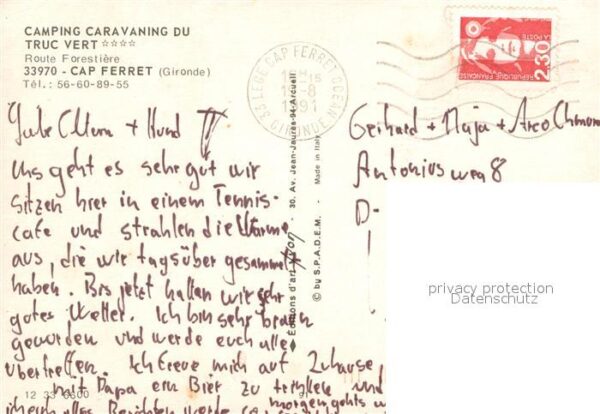 CAMPING CARAVANING DU
TRUC VERT ☆☆☆☆
Route Forestière
33970 - CAP FERRET (Gironde)
Tél.: 56-60-89-55
33 LEGE CAP FERRET OCEAN
GIRONDE
-8
1991
LA POSTE
2,30
REPUBLIQUE FRANÇAISE
+ Hund
Uns geht es sehr gut wir
sitzen hier in einem Tennis-
cafe und strahlen die Wärme
aus, die wir tagsüber gesammelt
haben. Bis jetzt hatten wir sehr
gutes Wetter. Ich bin sehr braun
geworden und werde euch alle
übertreffen. Ich freue mich auf Zuhause
mit Papa ein Bier zu trinken und
alles Berichten werde
morgen gehts w
Gerhard + Maja + Arco
Antonius weg 8
D-
Editions d'art
30, Av. Jean-Jaurès 94-Arcueil
© by S.P.A.D.E.M. - Made in Italy
12 33 6600
91
privacy protection
Datenschutz